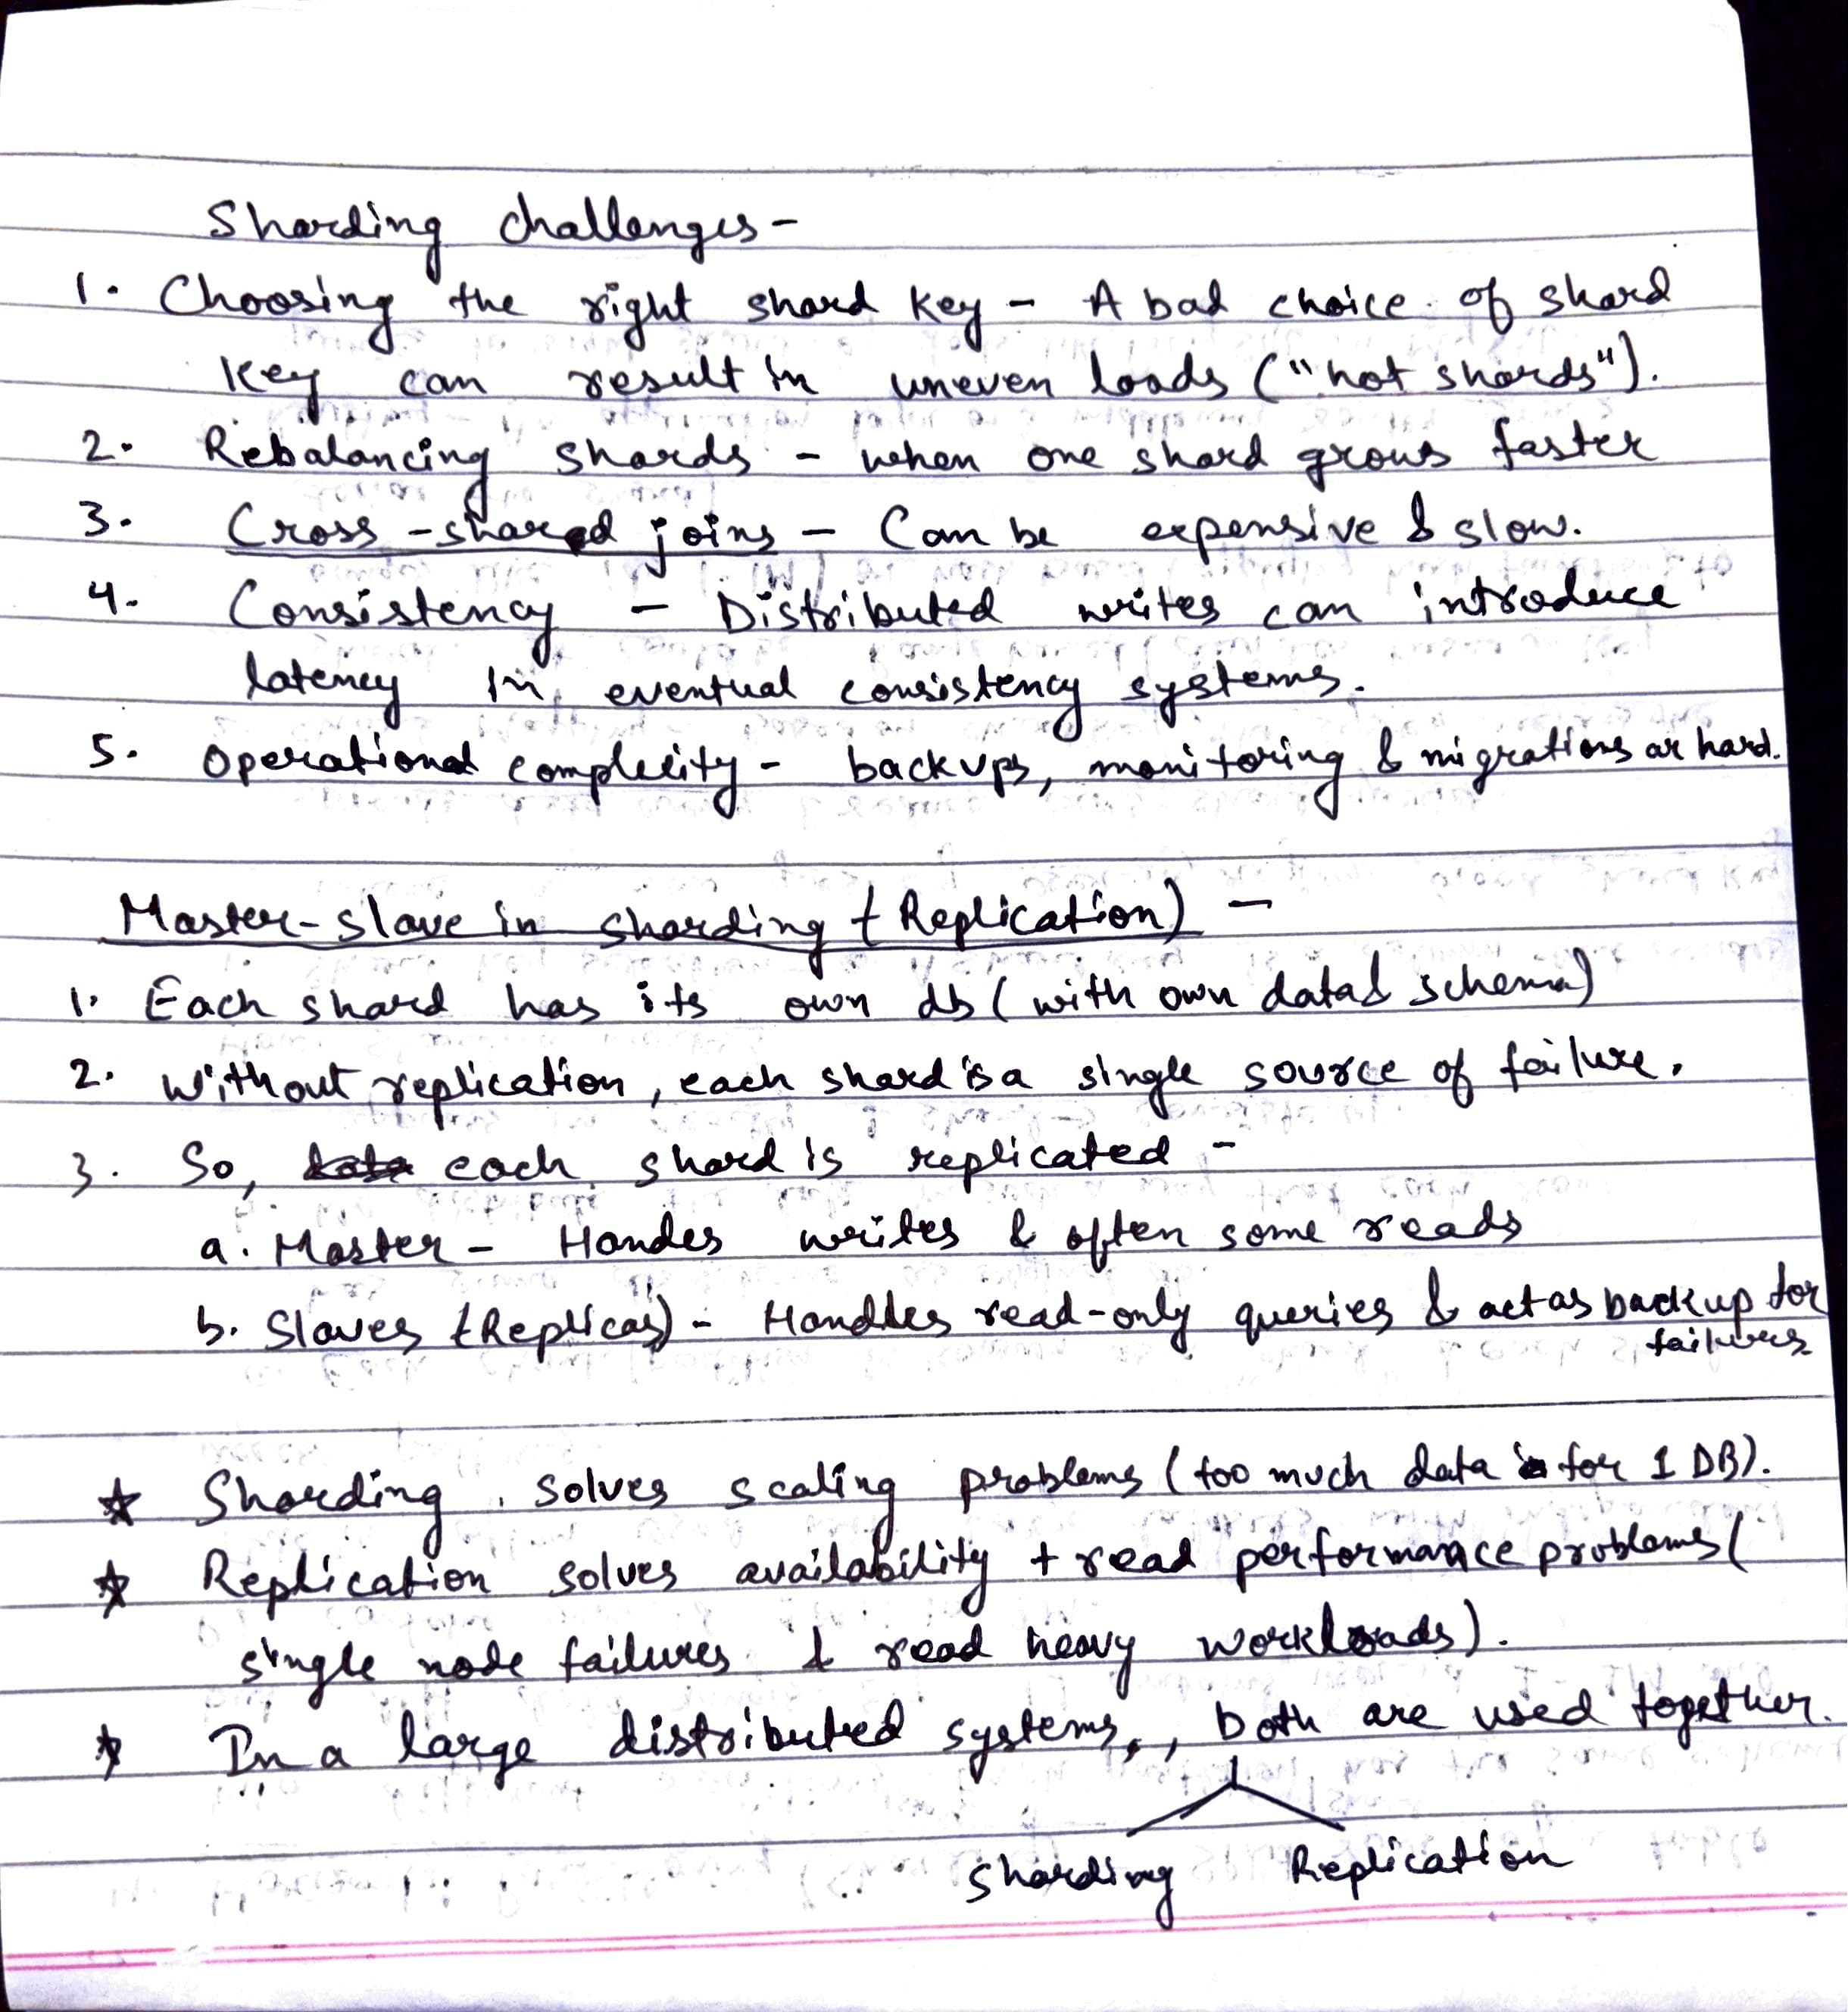 Sharding challenges -
1. Choosing the right shard key - A bad choice of shard
key can result in uneven loads ("hot shards").
2. Rebalancing shards - when one shard grows faster
3. Cross-shared joins - Can be expensive & slow.
4. Consistency - Distributed writes can introduce
latency in eventual consistency systems.
5. Operational complexity - backups, monitoring & migrations ar hard.
Master-slave in sharding (Replication) -
1. Each shard has its own db (with own data & schema)
2. Without replication, each shard is a single source of failure.
3. So, each shard is replicated -
a. Master - Handes writes & often some reads
b. Slaves (Replicas) - Handles read-only queries & act as backup for
failures
☆ Sharding solves scaling problems (too much data for 1 DB).
☆ Replication solves availability + read performance problems (
single node failures & read heavy workloads).
☆ In a large distributed systems, both are used together.
Sharding Replication